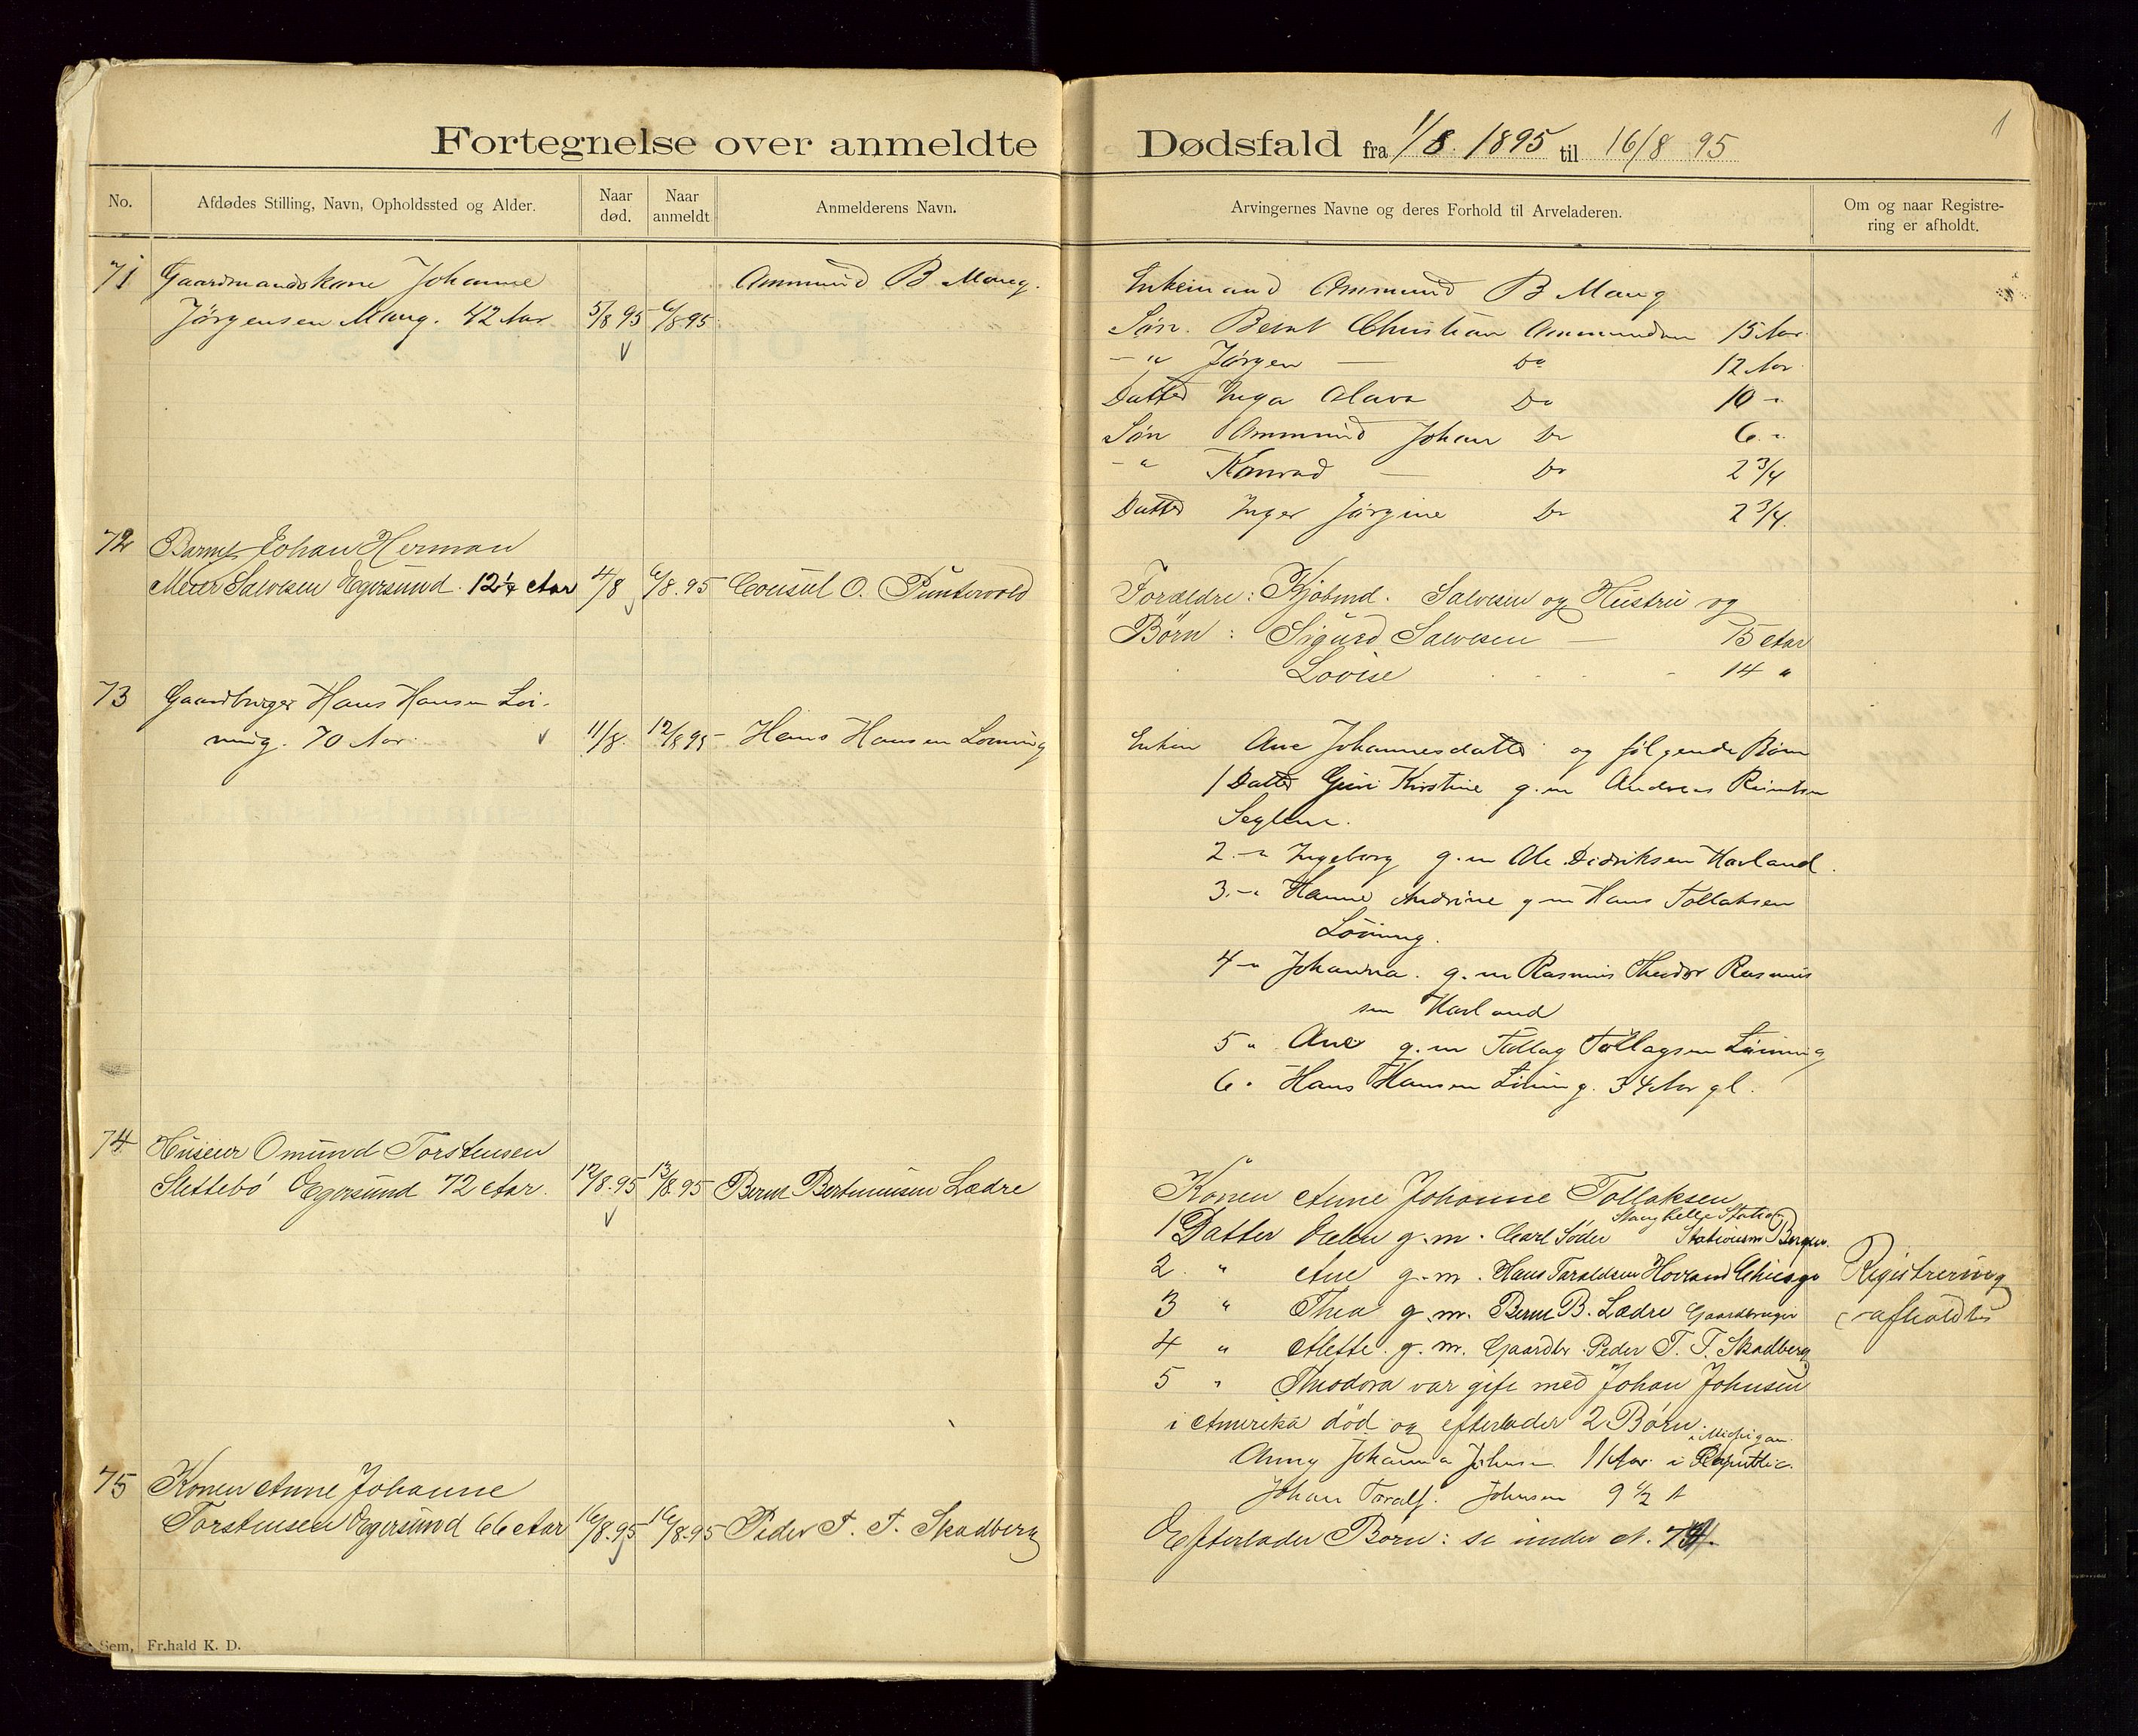 Fortegnelse over anmeldte Dødsfald fra 1/8. 1895 til 16/8 95
1
No.
Afdødes Stilling, Navn, Opholdssted og Alder.
Naar død.
Naar anmeldt
Anmelderens Navn.
Arvingernes Navne og deres Forhold til Arveladeren.
Om og naar Registre-
ring er afholdt.
71 Gaardmandskone Johanne Ammund B. Maug.
Jörgensen Maug. 42 Aar 5/8 95 6/8 95
Enkemand Ammund B Maug
Søn. Bernt Christian Ammundsen 15 Aar
- " Jörgen — Do 12 Aar
Datter Inga Olava Do 10 "
Søn Ammund Johan Do 6 "
- " Konrad — Do 2 3/4
Datter Inger Jörgine Do 2 3/4
72 Barnet Johan Herman
Meier Salvesen Egersund. 12 1/4 Aar 4/8 6/8.95 Consul O. Puntervold
Forældre: Kjöbmd. Salvesen og Hustru og
Børn: Sigurd Salvesen — 15 Aar
Lovise 14 "
73 Gaardbruger Hans Hansen Lö-
ning. 70 Aar. 11/8. 12/8 95 Hans Hansen Löning
Enken Ane Johannesdatter og fölgende Börn
1 Datter Guri Kirstine g.m Andreas
Seglem.
2 - " Ingeborg g.m Ole Didriksen Havland.
3. - " Hanne Andrine g m Hans Tollaksen
Löning.
4 - " Johanna. g.m Rasmus Theodor Rasmus
sen Havland
5 " Ane g.m Tollag Tollagsen Löning
6 " Hans Hansen Löning. 34 Aar gl.
74 Huseier Omund Torstensen
Slettebö Egersund 72 Aar. 12/8.95 13/8.95 Bernt Bertinusen Lædre
Konen Anne Johanne Tollaksen
Stanghelle Station
1 Datter Helen g.m. Carl Söder Stationsm Bergen.
2. " Ane g.m. Hans Taraldsen Hovland Chicago
3 " Thea g.m. Bernt B. Lædre Gaardbruger
4 " Mette. g.m. Gaardbr. Peder T. T. Skadberg
5 " Theodora var gift med Johan Johnsen
i Amerika död og efterlader 2 Börn.
i Michigan
Anny Johanna Johnsen 11 Aar i Republic.
Johan Toralf. Johnsen 9 1/2 A
Registrering
afholdtes
75 Konen Anne Johanne
Torstensen Egersund 66 Aar 16/8.95 16/8.95 Peder T. T. Skadberg
Efterlader Börn: se under N. 74.
Sem, Fr.hald K. D.